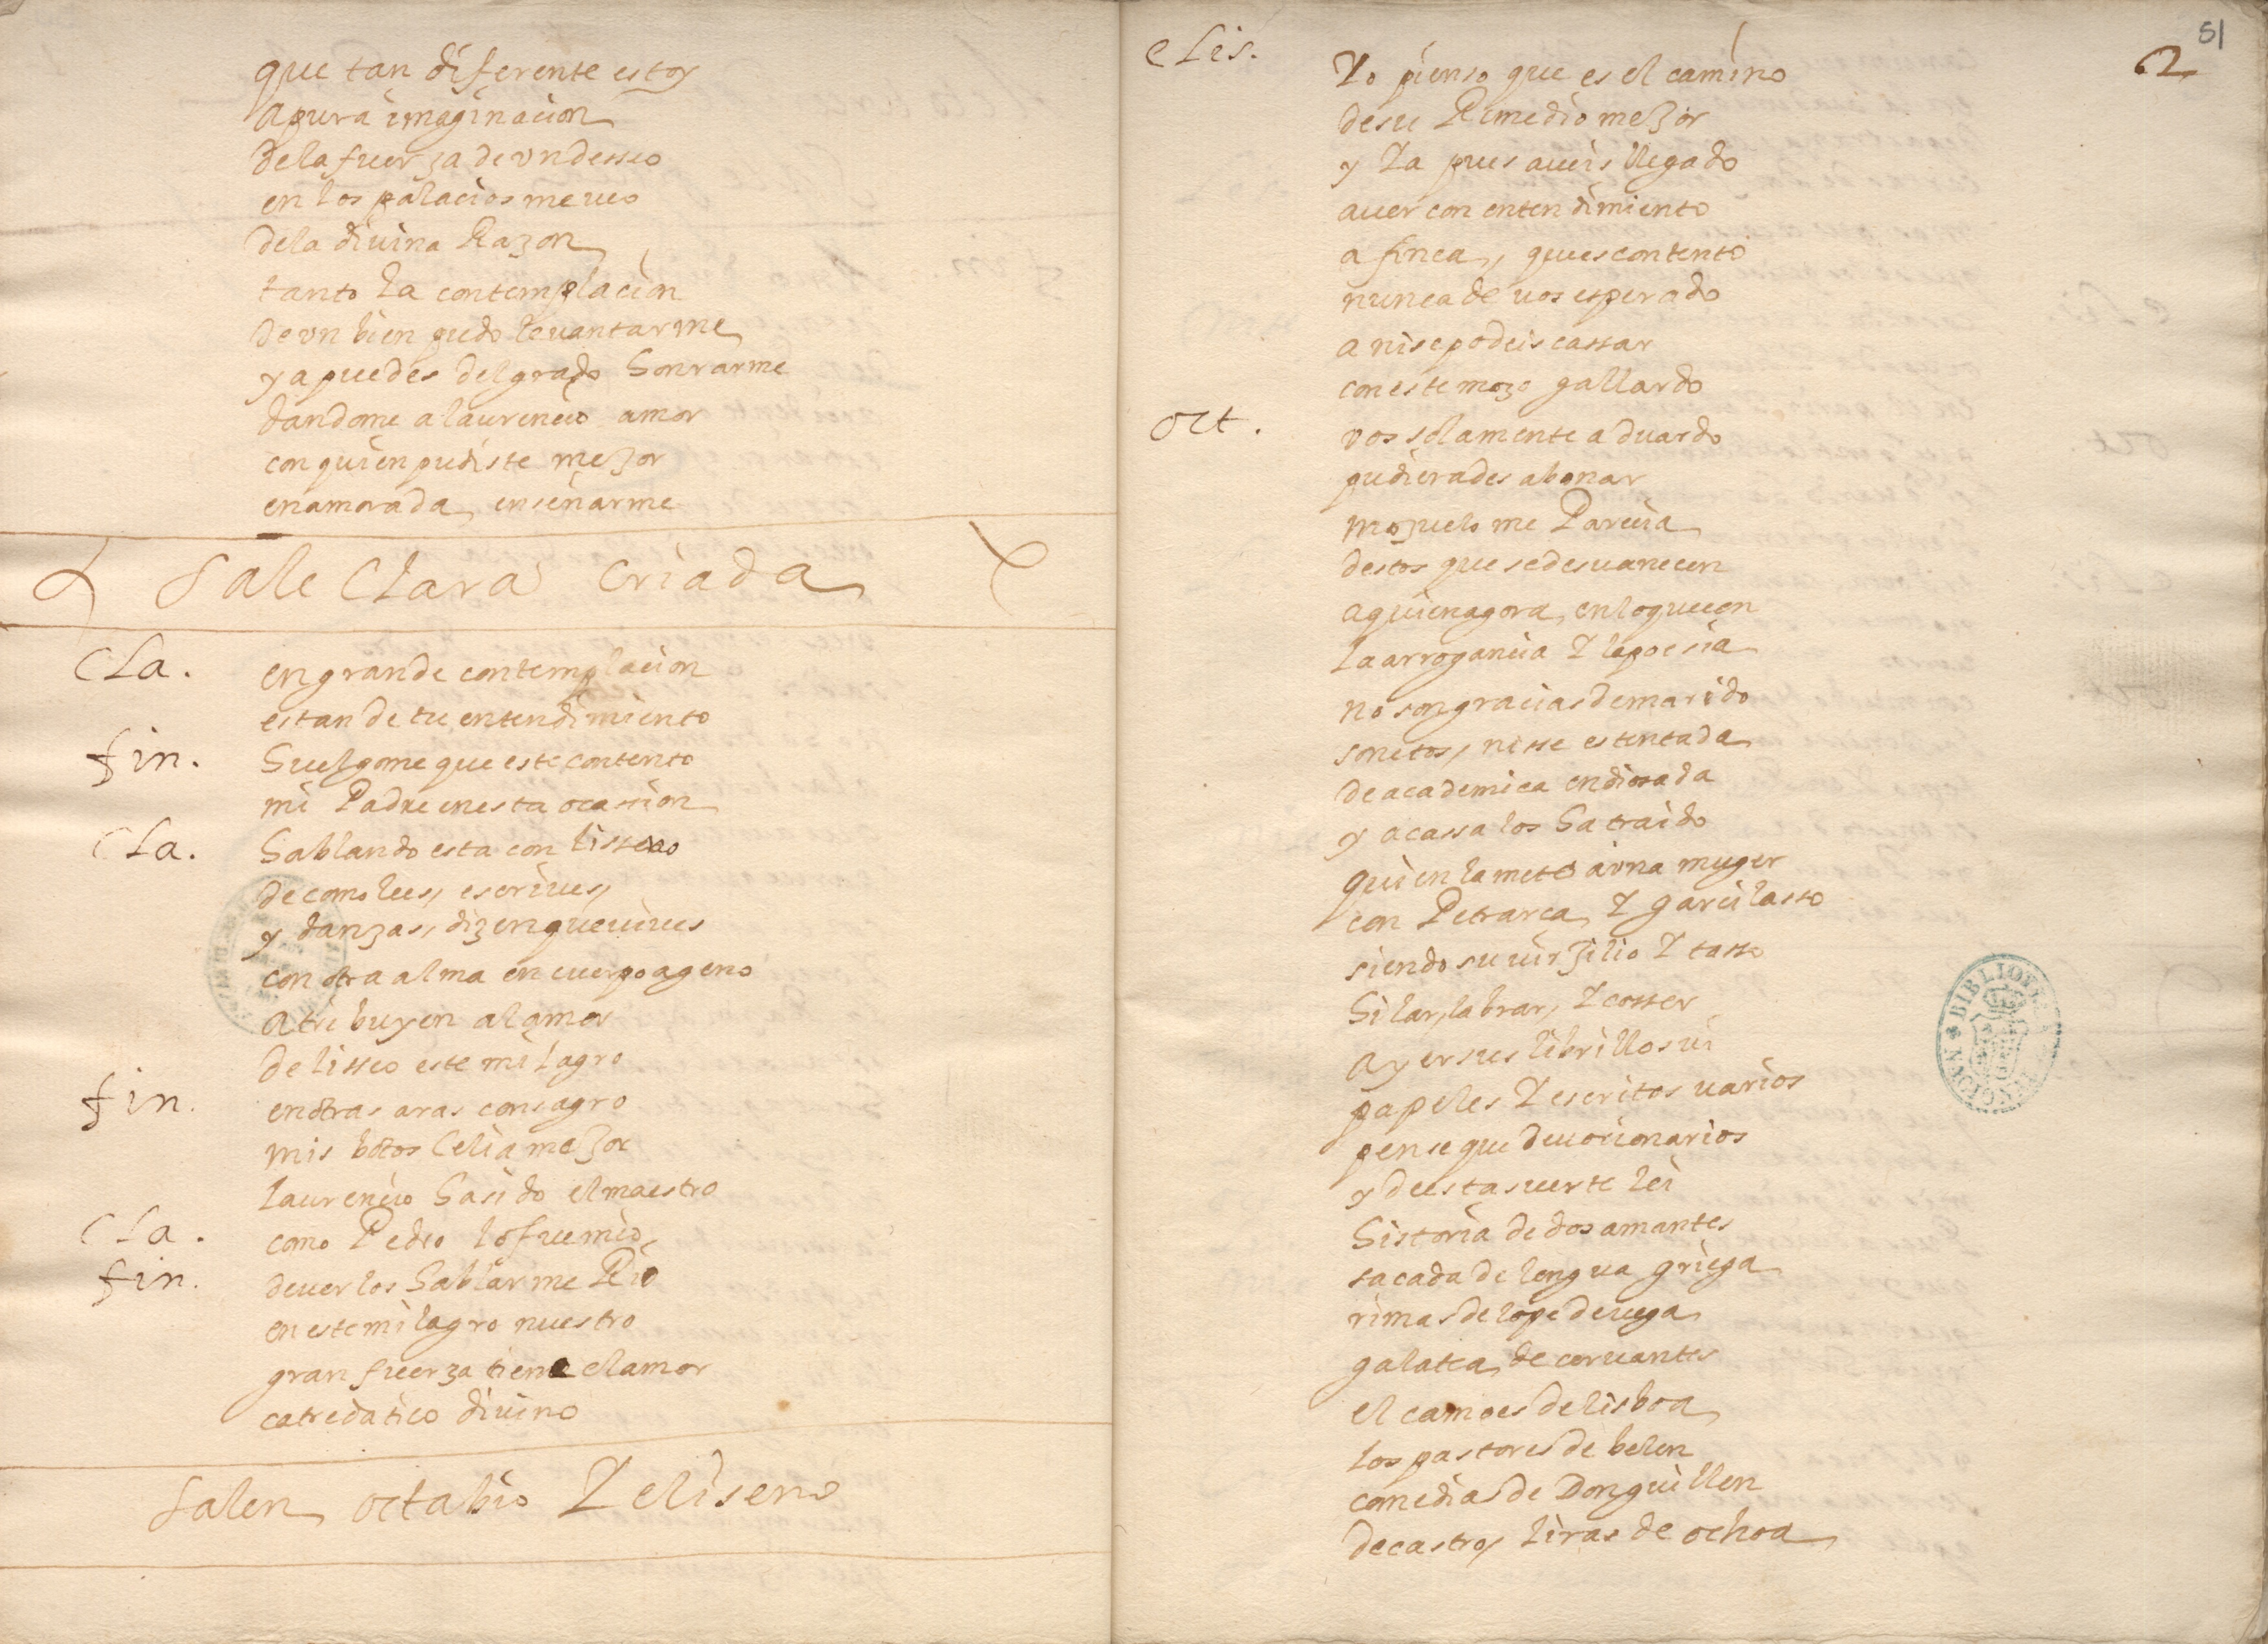 que tan diferente estoy
a pura imaginacion
de la fuerza de un desseo
en los palacios me veo
de la divina Razon
tanto la contemplacion
de un bien pudo levantarme
ya puedes del grado honrarme
dandome a laurencio amor
con quien pudiste mejor
enamorada, enseñarme
Sale Clara criada
Cla. en grande contemplacion
estan de tu entendimiento
fin. huelgome que este contento
mi Padre en esta ocassion
Cla. hablando esta con lisseno
de como lees, escrives,
y danzas, dizen que vives
con otra alma en cuerpo ageno
atribuyen al amor
de lisseo este milagro
fin. en otras aras consagro
mis botos Celia mejor
laurencio ha sido el maestro
Cla. como Pedro lo fue mio,
fin. de ver los hablar me Rio
en este milagro nuestro
gran fuerza tiene el amor
catredatico divino
Salen octabio Y eliseno
51
2
elis. Yo pienso que es el camino
de su Remedio mejor
y Ya pues aveis llegado
a ver con entendimiento
a finea, que es contento
nunca de vos esperado
a nise podeis cassar
con este mozo gallardo
oct. vos solamente a duardo
pudierades abonar
mozuelo me Parecia
destos que se desvanecen
a quien agora, enloquecen
la arrogancia Y la poesia
no son gracias de marido
sonetos, nisse es tentada
de academica endiosada
y a cassa los ha traido
quien la mete a una muger
con Petrarca, Y garcilasso
siendo su virjilio Y tasso
hilar, labrar, Y cosser
ayer sus librillos vi
papeles Y escritos varios
pense que devocionarios
y de esta suerte lei
historia de dos amantes
sacada de lengua griega
rimas de lope de vega
galatea de cervantes
el camoes de lisboa
los pastores de belen
comedias de Don guillen
de castro, liras de ochoa
BIBLIOTECA NACIONAL